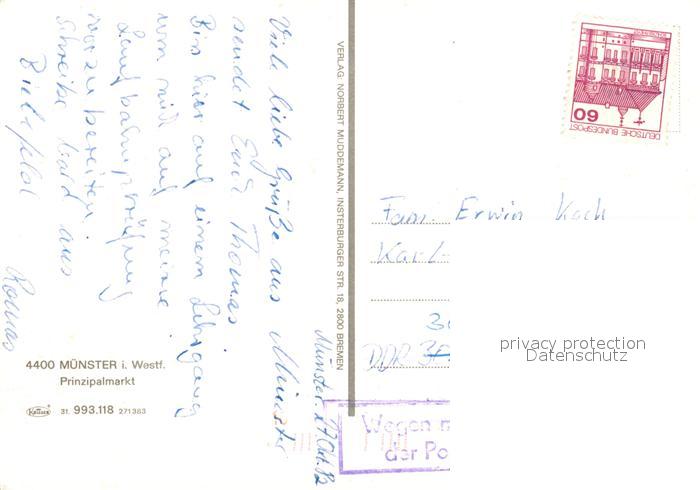 Münster. 27 Okt. 82
Viele liebe Grüße aus Münster
sendet Euch Thomas
Bin hier auf einem Lehrgang
um mich auf meine
Laufbahnprüfung
vorzubereiten
Schreibe bald aus
Bielefeld
Thomas
4400 MÜNSTER i. Westf.
Prinzipalmarkt
31. 993.118 271383
VERLAG NORBERT MUDDEMANN, INSTERBURGER STR. 18, 2800 BREMEN
60
DEUTSCHE BUNDESPOST
Fam. Erwin Koch
Karl-
DDR
privacy protection
Datenschutz
Wegen
der Po